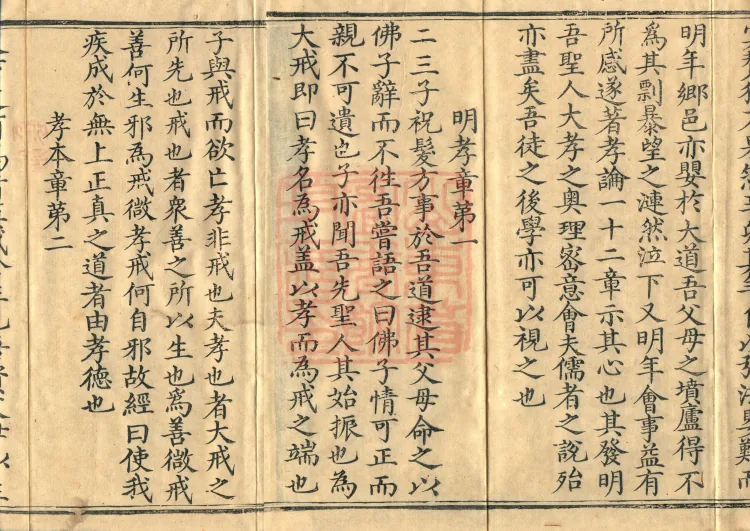 明年鄉邑亦嬰於大道吾父母之墳廬得不
為其剽暴望之漣然泣下又明年會事益有
所感遂著孝論一十二章示其心也其發明
吾聖人大孝之奧理密意會夫儒者之說殆
亦盡矣吾徒之後學亦可以視之也
明孝章第一
二三子祝髮方事於吾道逮其父母命之以
佛子辭而不徃吾嘗語之曰佛子情可正而
親不可遺也子亦聞吾先聖人其始振也為
大戒即曰孝名為戒盖以孝而為戒之端也
子與戒而欲亡孝非戒也夫孝也者大戒之
所先也戒也者衆善之所以生也為善微戒
善何生邪為戒微孝戒何自邪故經曰使我
疾成於無上正真之道者由孝德也
孝本章第二